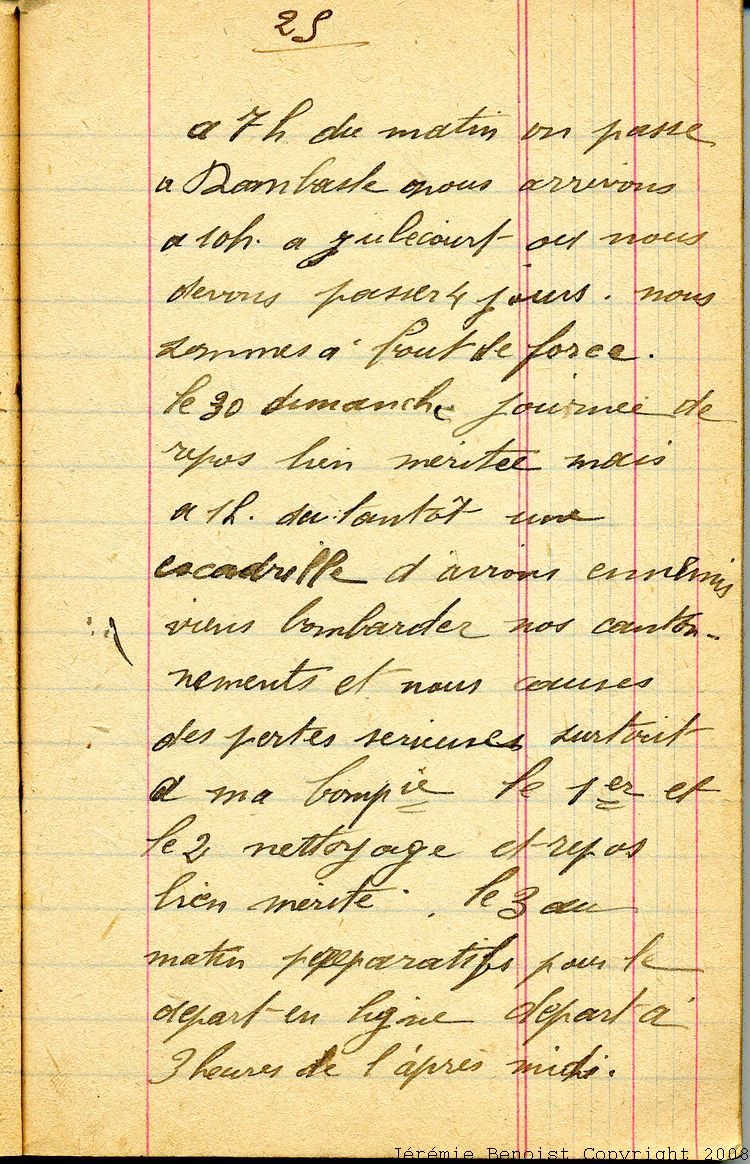 25
a 7 h du matin on passe
a Dombasle nous arrivons
a 10h. a Julécourt ou nous
devons passer 4 jours. nous
sommes a bout de force.
le 30 dimanche journee de
repos bien meritee mais
a 1h. du tantôt une
escadrille d'avions ennemis
viens bombarder nos canton-
nements et nous causes
des pertes serieuses surtout
a ma Compie le 1er et
le 2 nettoyage et repos
bien mérité. le 3 au
matin preparatifs pour le
depart en ligne depart à
3 heures de l'après midi.
Jérémie Benoist Copyright 2008